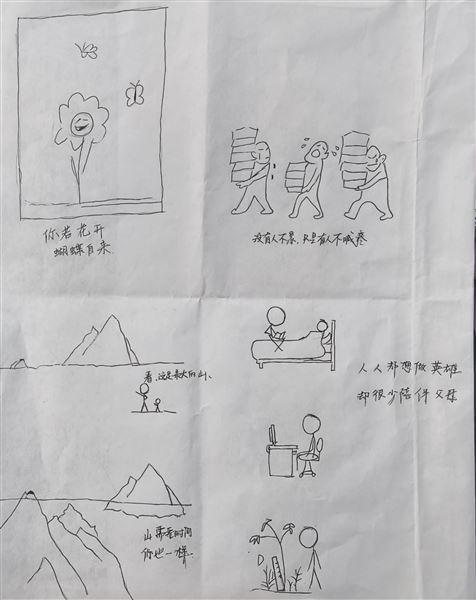 你若花开
蝴蝶自来
没有人不累,只是有人不喊疼
看,这是最大的山、
山需要时间
你也一样
人人都想做英雄
却很少陪伴父母